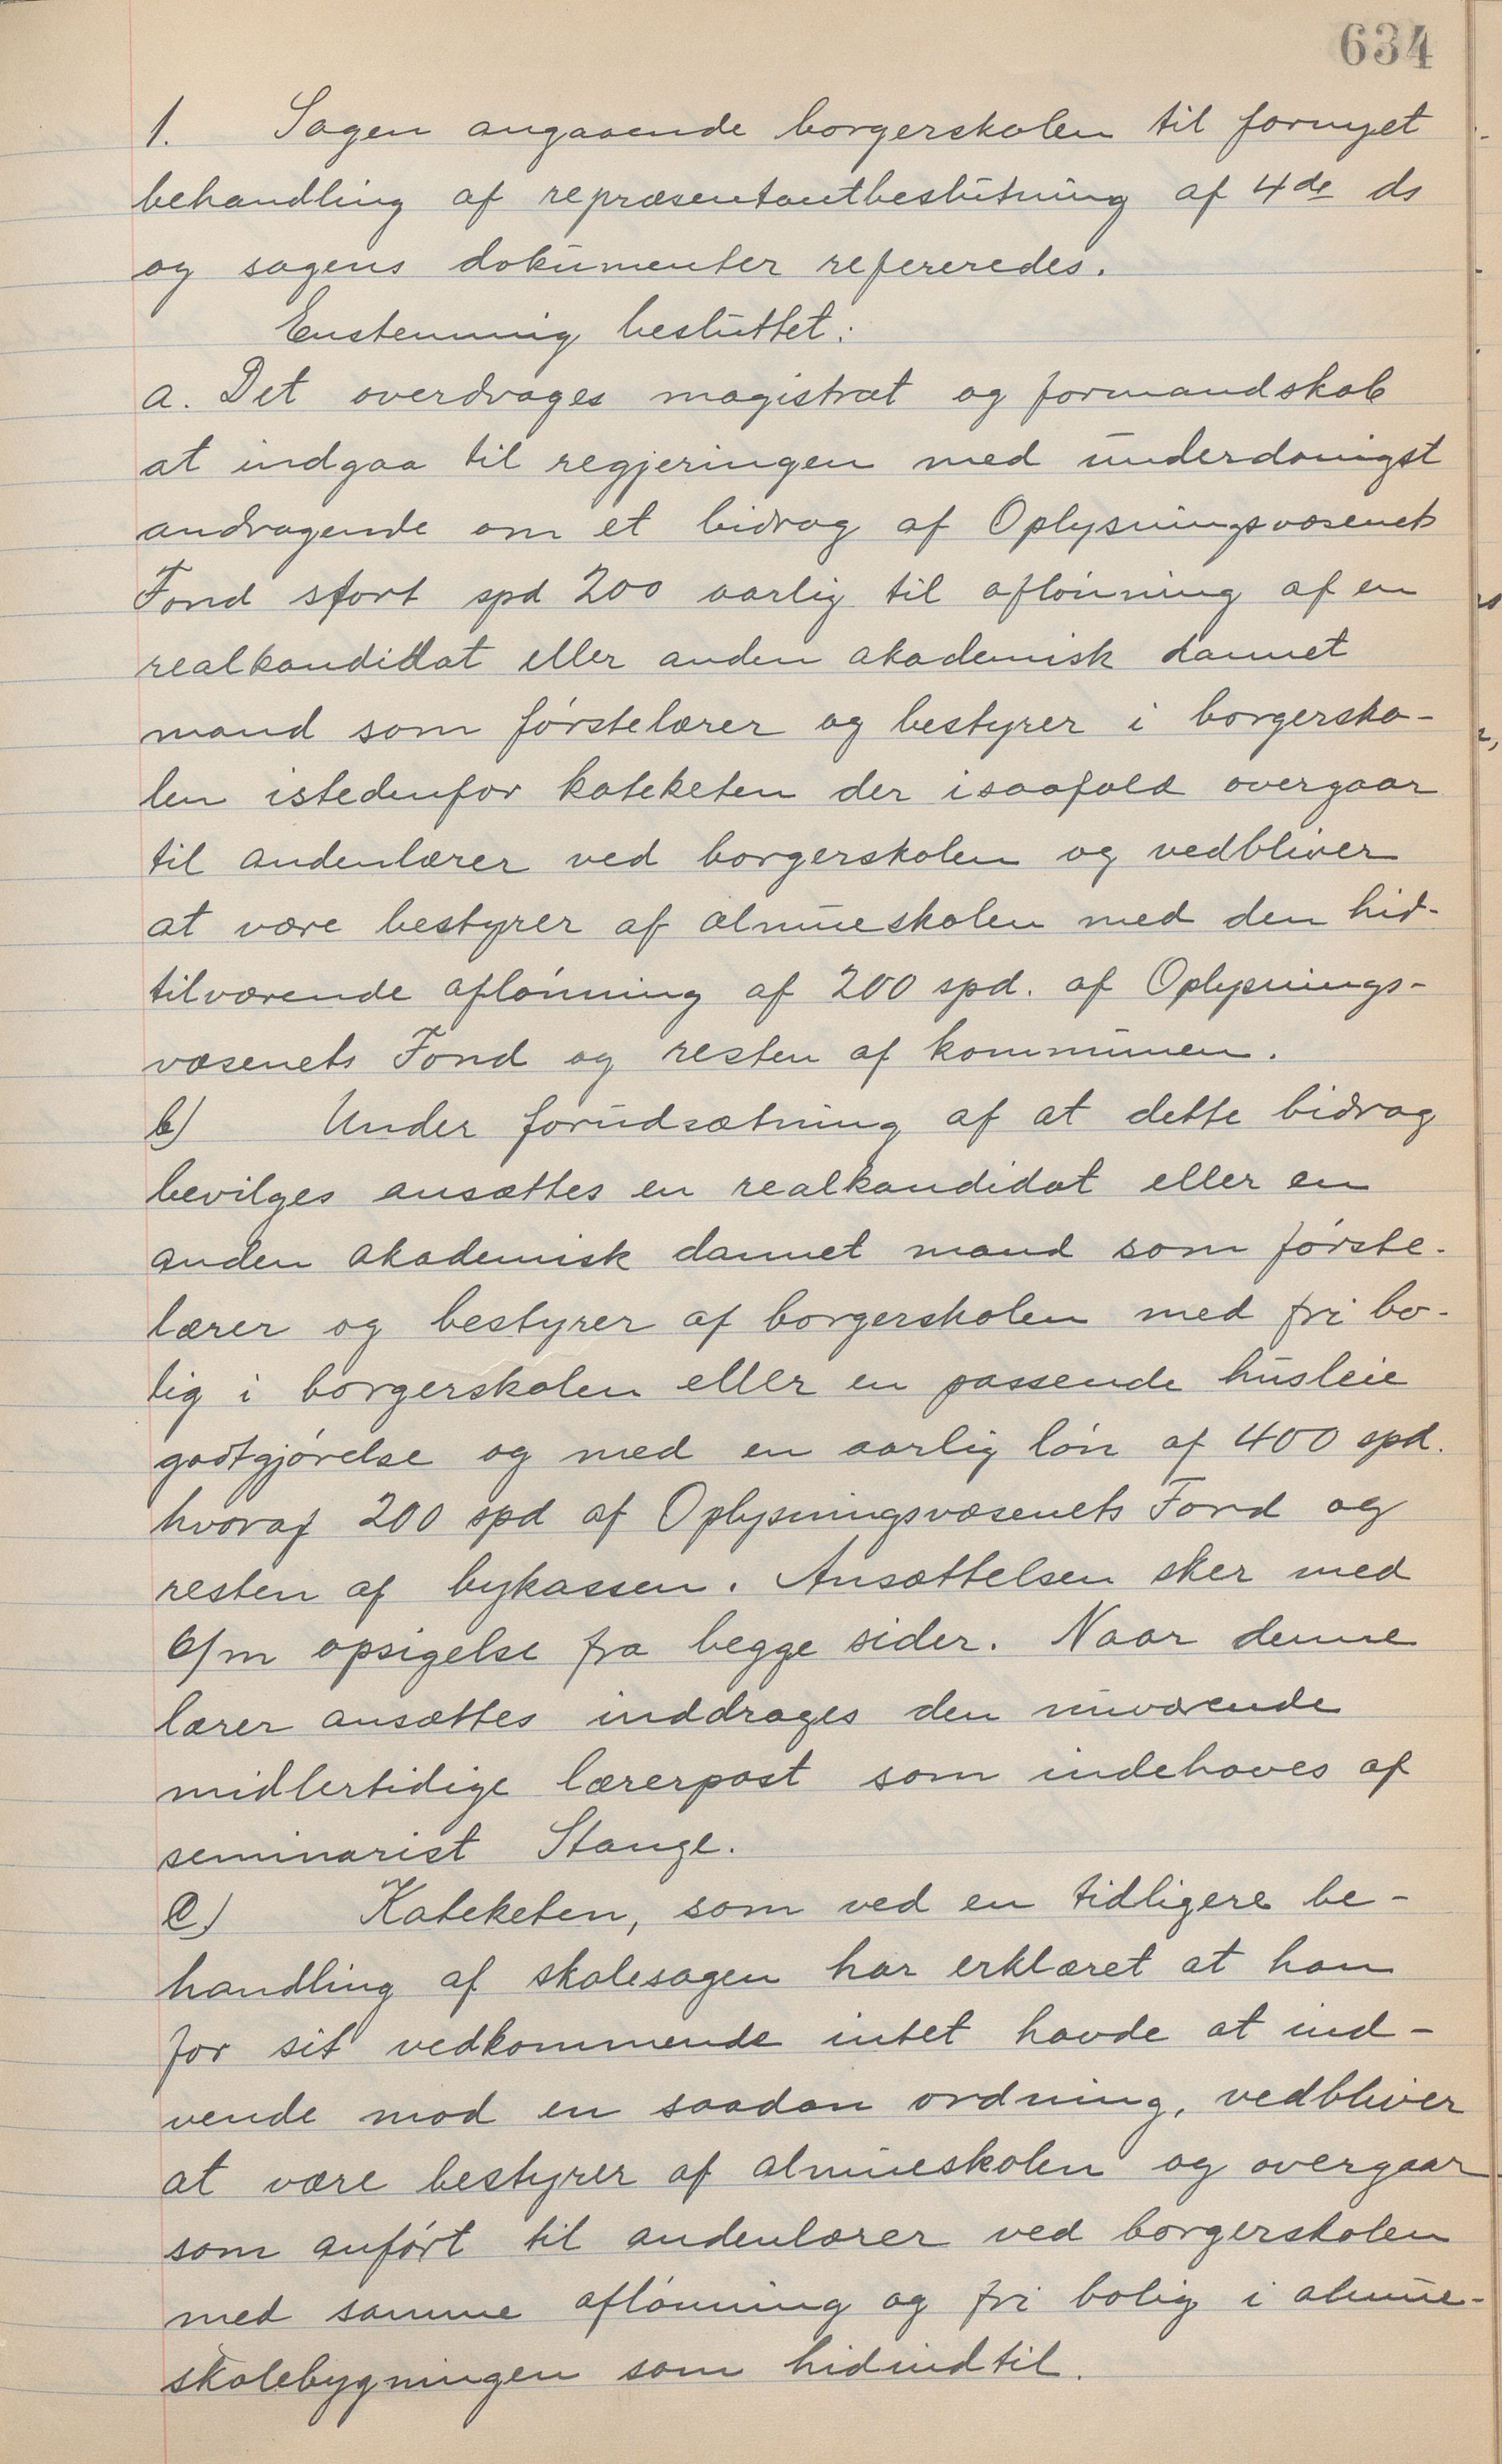 634
1. Sagen angaaende borgerskolen til fornyet
behandling af repræsentantbeslutning af 4de ds
og sagens dokumenter refereredes.
Enstemmig besluttet:
a. Det overdrages magistrat og formandskab
at indgaa til regjeringen med underdanigst
andragende om et bidrag af Oplysningsvæsenets
Fond stort spd 200 aarlig til aflønning af en
realkandidat eller anden akademisk dannet
mand som førstelærer og bestyrer i borgersko-
len istedenfor kateketen der isaafald overgaar
til andenlærer ved borgerskolen og vedbliver
at være bestyrer af almueskolen med den hid-
tilværende aflønning af 200 spd. af Oplysnings-
væsenets Fond og resten af kommunen.
b) Under forudsætning af at dette bidrag
bevilges ansættes en realkandidat eller en
anden akademisk dannet mand som første-
lærer og bestyrer af borgerskolen med fri bo-
lig i borgerskolen eller en passende husleie
godtgjørelse og med en aarlig løn af 400 spd.
hvoraf 200 spd af Oplysningsvæsenets Fond og
resten af bykassen. Ansættelsen sker med
6/m opsigelse fra begge sider. Naar denne
lærer ansættes inddrages den nuværende
midlertidige lærerpost som indehaves af
seminarist Stange.
c) Kateketen, som ved en tidligere be-
handling af skolesagen har erklæret at han
for sit vedkommende intet havde at ind-
vende mod en saadan ordning, vedbliver
at være bestyrer af almueskolen og overgaar
som anført til andenlærer ved borgerskolen
med samme aflønning og fri bolig i almue-
skolebygningen som hidindtil.